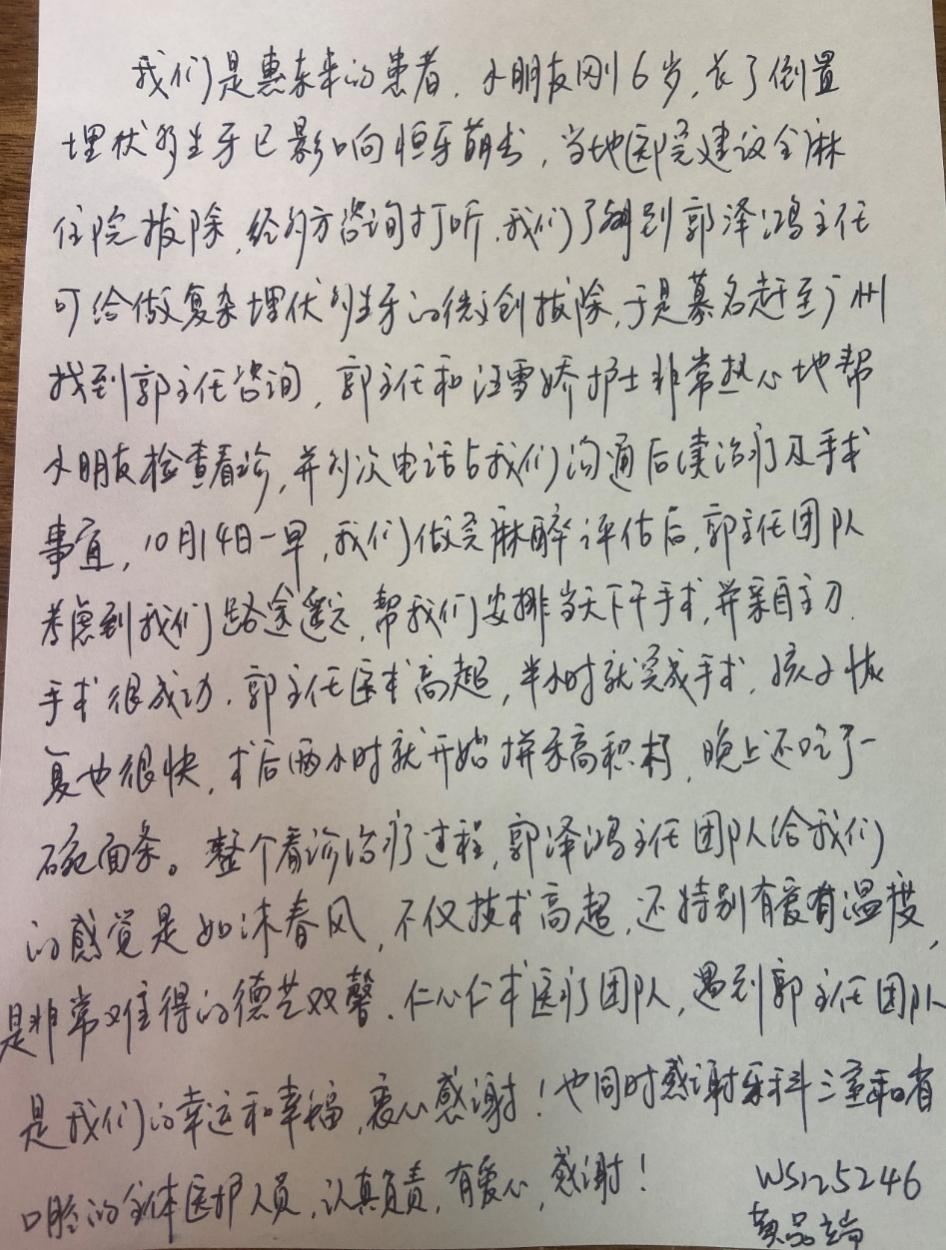 我们是惠东来的患者，小朋友刚6岁，长了倒置
埋伏多生牙已影响恒牙萌出，当地医院建议全麻
住院拔除，经多方咨询打听，我们了解到郭泽鸿主任
可给做复杂埋伏多生牙的微创拔除，于是慕名赶至广州
找到郭主任咨询，郭主任和汪雪娇护士非常热心地帮
小朋友检查看诊，并多次电话与我们沟通后续治疗及手术
事宜，10月14日一早，我们做完麻醉评估后，郭主任团队
考虑到我们路途遥远，帮我们安排当天下午手术，并亲自主刀.
手术很成功.郭主任医术高超，半小时就完成手术，孩子恢
复也很快，术后两小时就开始拼乐高积木，晚上还吃了一
碗面条。整个看诊治疗过程，郭泽鸿主任团队给我们
的感觉是如沐春风，不仅技术高超，还特别有爱有温度，
是非常难得的德艺双馨、仁心仁术医疗团队，遇到郭主任团队
是我们的幸运和幸福，衷心感谢！也同时感谢牙科三室和省
口腔的全体医护人员，认真负责，有爱心，感谢！
WS125246